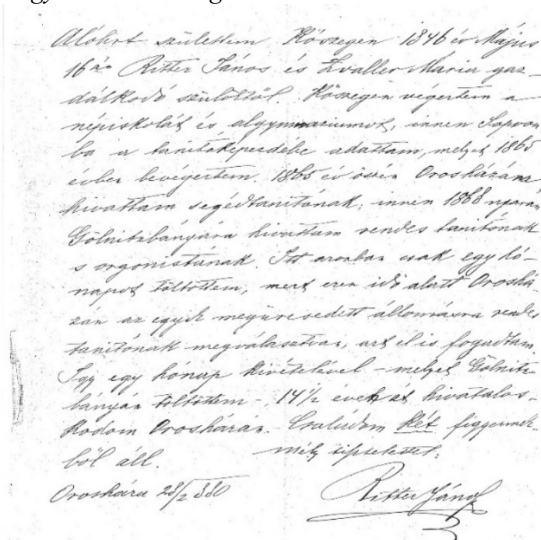 Alólirt születtem Kőszegen 1846 év Május
16án Ritter János és Zvaller Maria gaz-
dálkodó szülöktől. Kőszegen végeztem a
népiskolát és algymnasiumot, innen Sopron
ba a tanitóképezdébe adattam, melyet 1865
évben bevégeztem. 1865 év őszén Orosházára
hivattam segédtanitónak; innen 1868 nyarán
Gölnitzbányára hivattam rendes tanitónak
s orgonistának. Itt azonban csak egy hó-
napot töltöttem, mert ezen idő alatt Oroshá-
zán az egyik megüresedett állomásra rendes
tanitónak megválasztva, azt el is fogadtam.
Igy egy hónap kivételével – melyet Gölnitz
bányán töltöttem – 14 1/2 évek át hivatalos-
kodom Orosházán. Családom két gyermek-
ből áll.
mély tisztelettel:
Orosháza 28/2 880
Ritter János